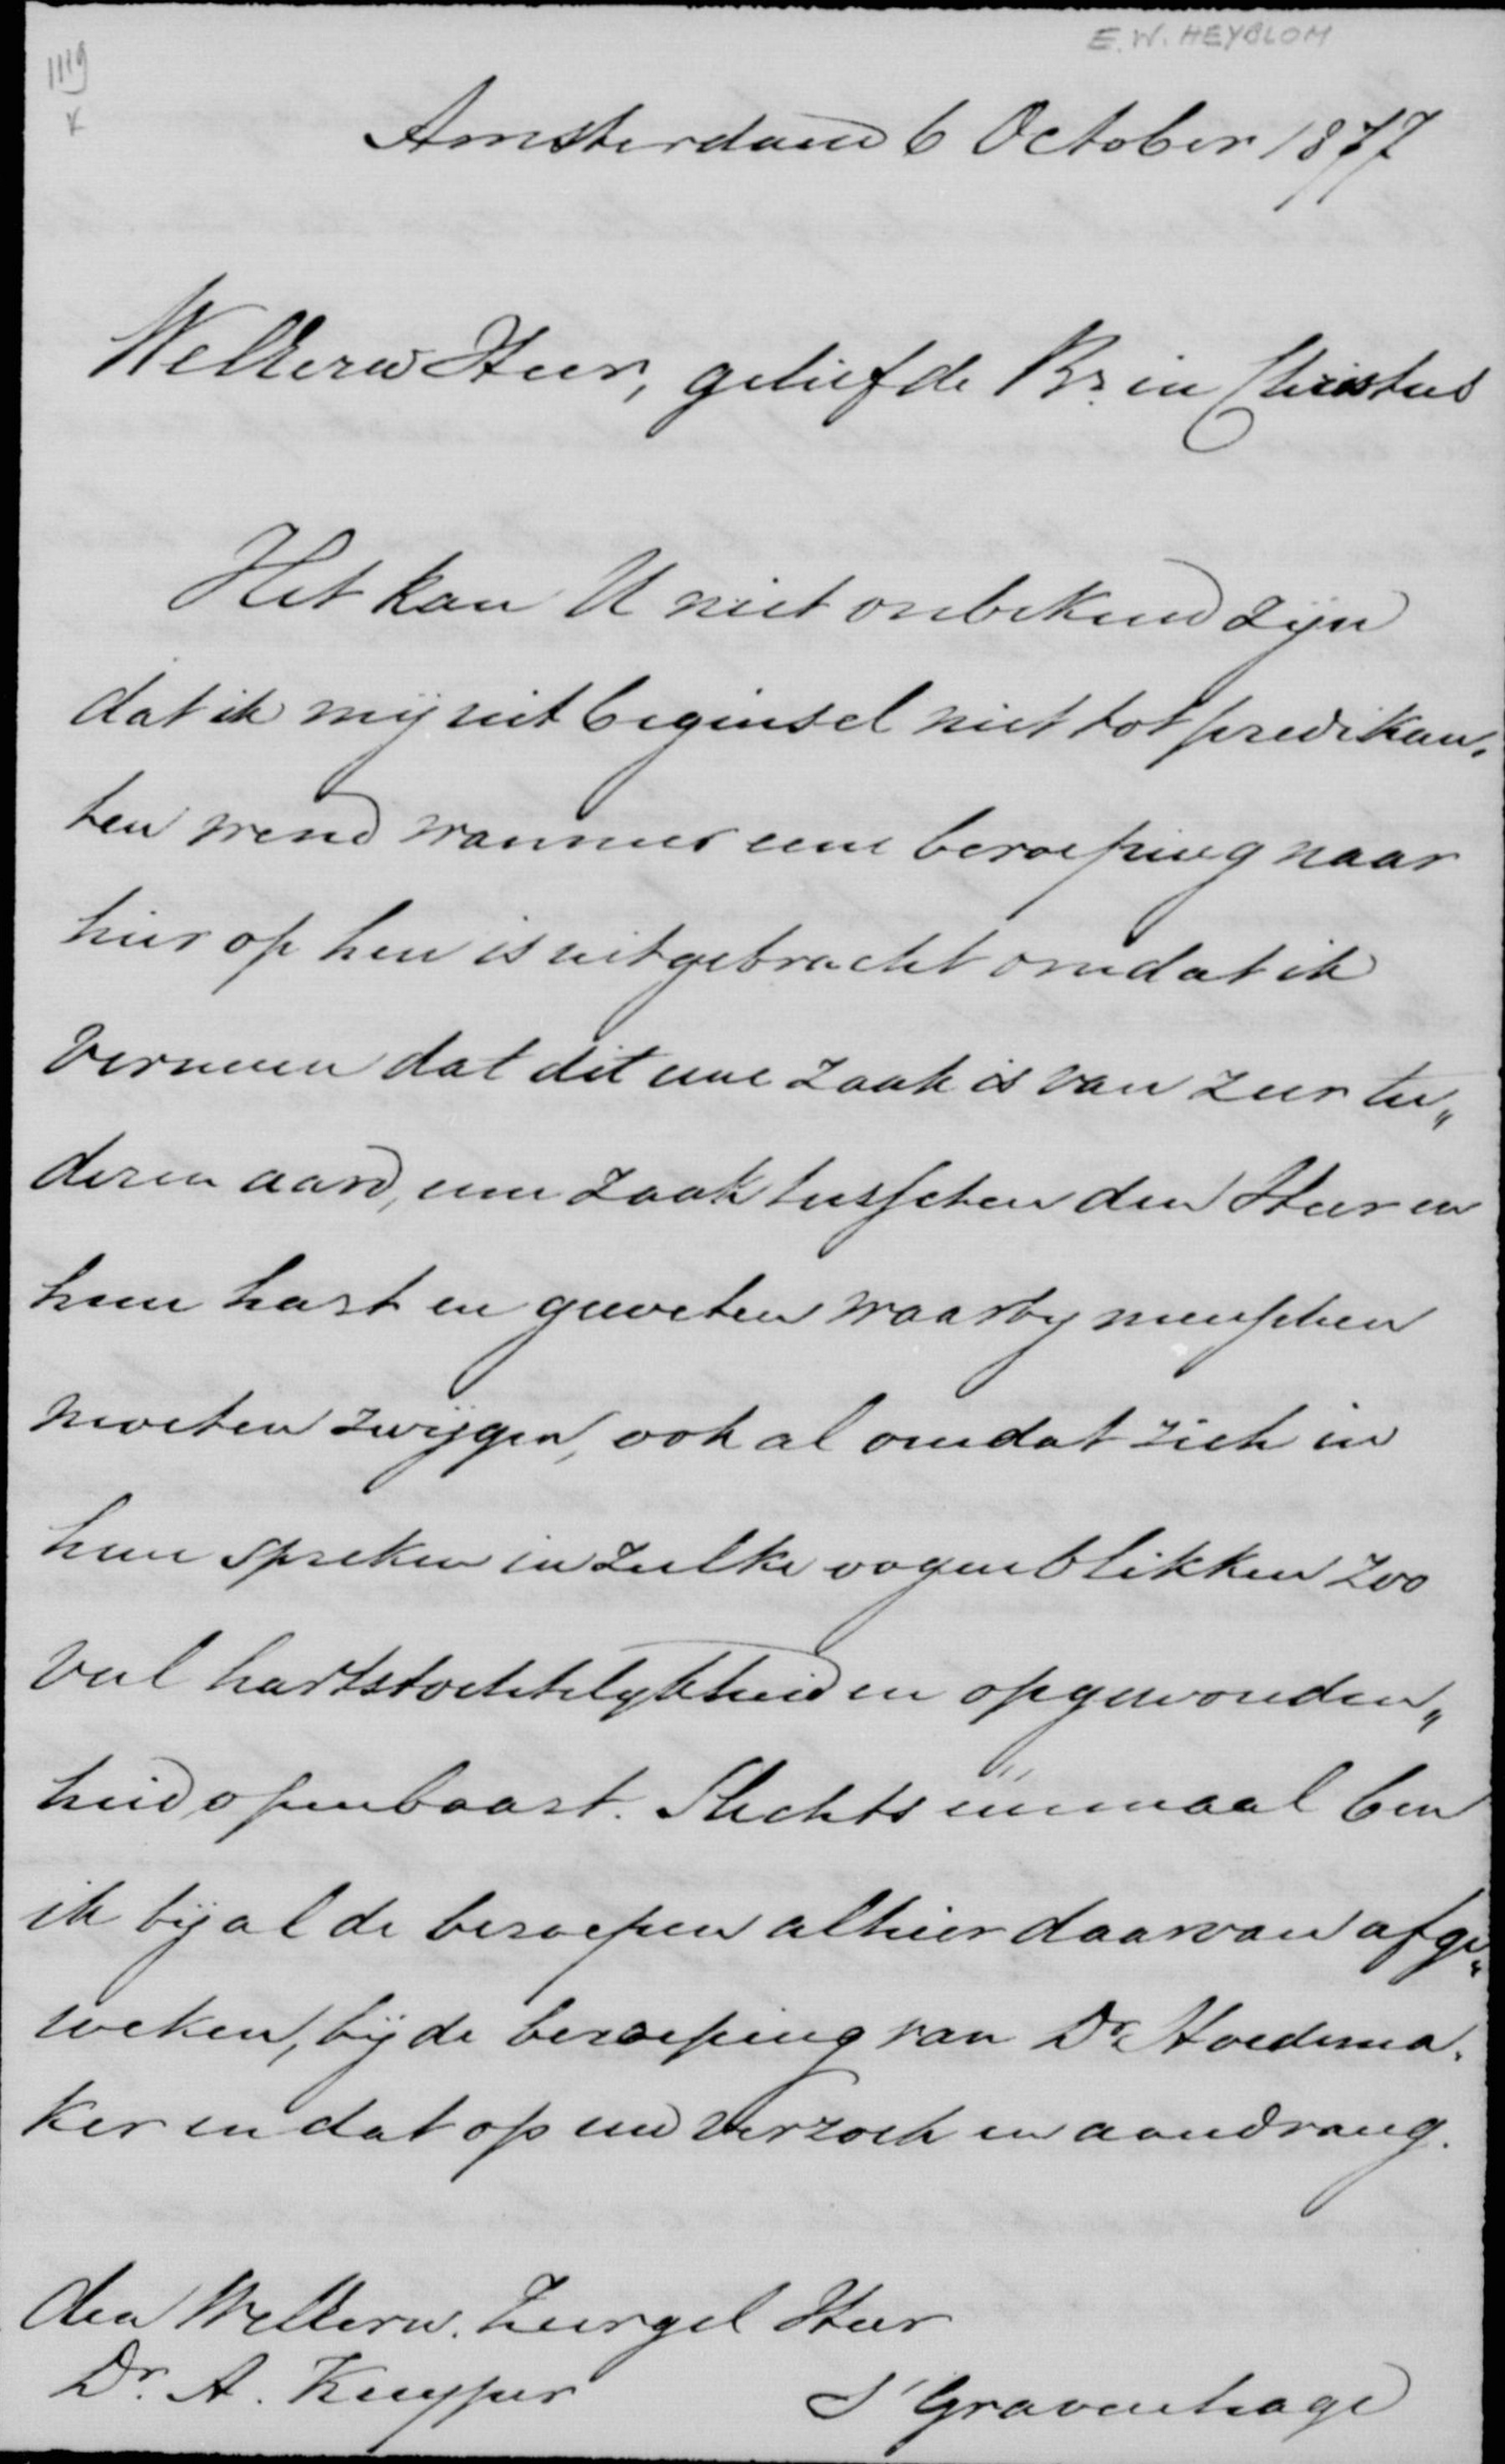 E.W. HEYBLOM
1119
x
Amsterdam 6 October 1877
WelEerw Heer, geliefde Br. in Christus
Het kan U niet onbekend zijn
dat ik mij uit beginsel niet tot predikan„
ten wend wanneer eene beroeping naar
hier op hen is uitgebracht omdat ik
vermeen dat dit eene zaak is van zeer tee„
deren aard, eene zaak tusschen den Heer en
hun hart en geweten waarby menschen
moeten zwijgen, ook al omdat zich in
hun spreken in zulke oogenblikken zoo
veel hartstochtelykheid en opgewonden„
heid openbaart. Slechts éénmaal ben
ik bij al de beroepen alhier daarvan afge„
weken, bij de beroeping van Dr. Hoedema„
ker en dat op uw verzoek en aandrang.
den WelEerw. Zeergel Heer
Dr. A. Kuyper
S'Gravenhage